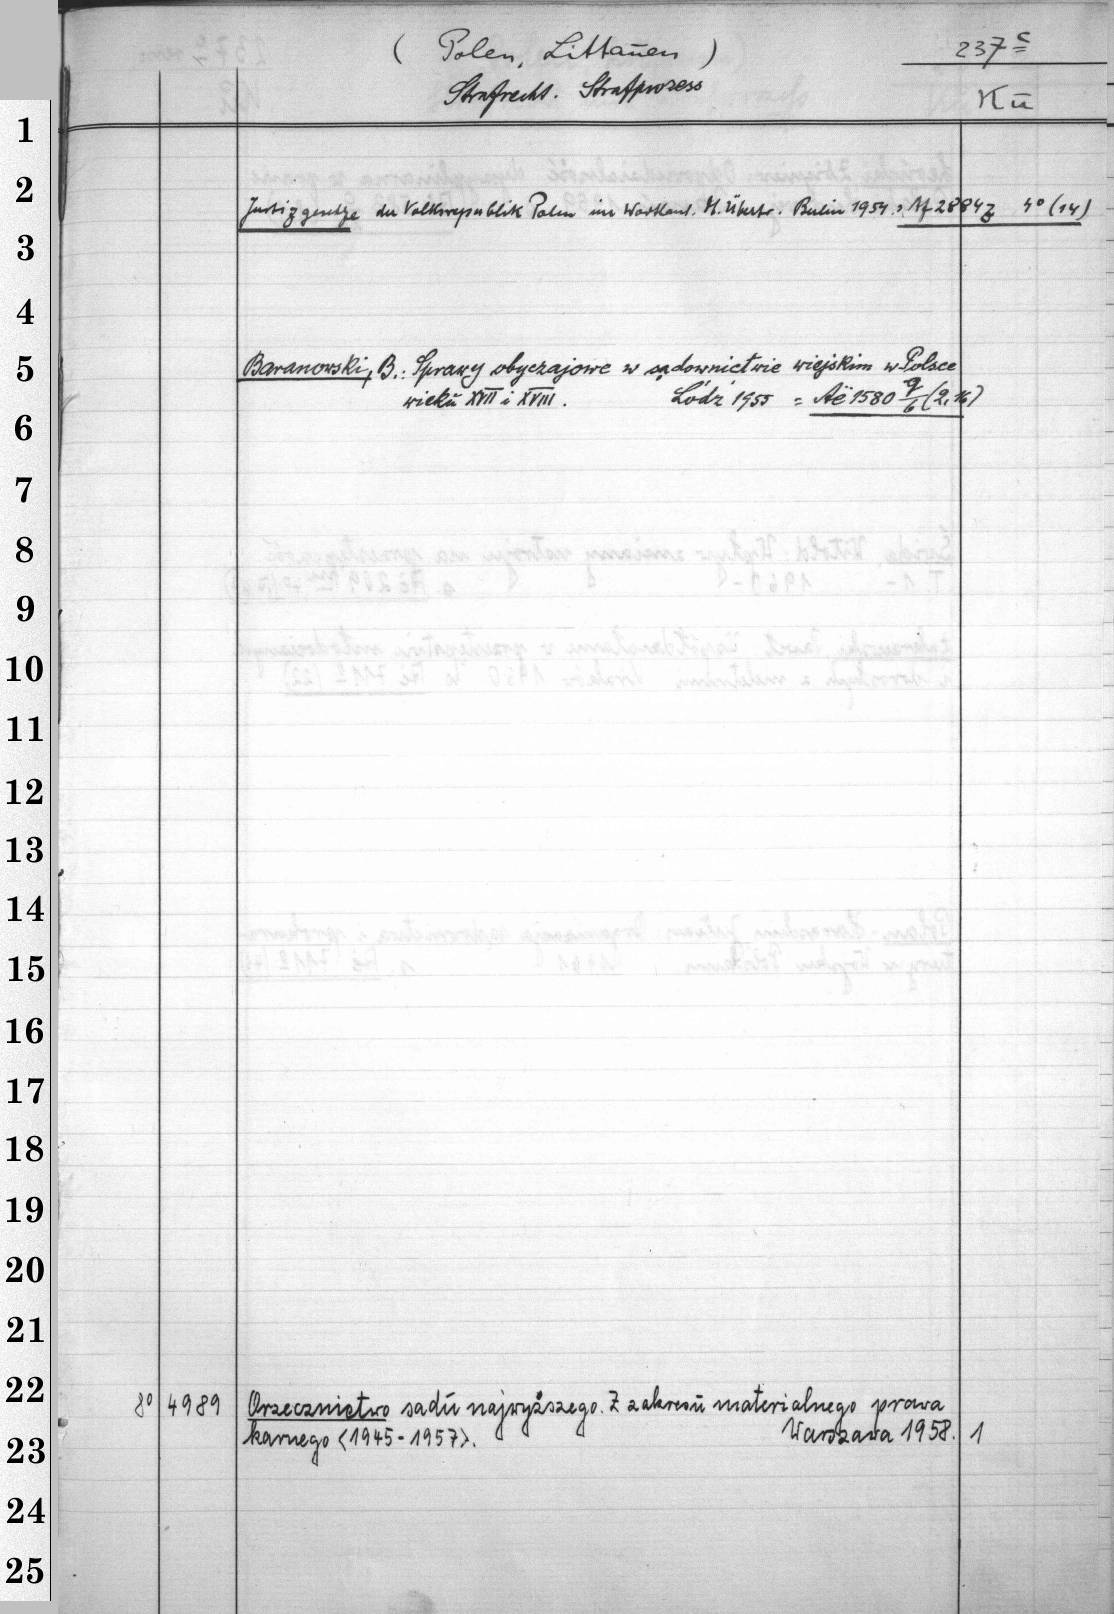 ( Polen, Littauen ) 237 c
Strafrecht. Strafprozess Kü
1
2
Justizgesetze der Volksrepublik Polen im Wortlaut. H. Übertr. Berlin 1954. = Af 2884z 4° (14)
3
4
5
Baranowski, B.: Sprawy obyczajowe w sądownictwie wiejskim w Polsce
wieku XVII i XVIII. Łódź 1955 = Aë 1580 9/6 (2,16)
6
7
8
9
10
11
12
13
14
15
16
17
18
19
20
21
22
8° 4989 Orzecznictwo sadu najwyższego. Z zakresu materialnego prawa
karnego <1945-1957>. Warszawa 1958. 1
23
24
25